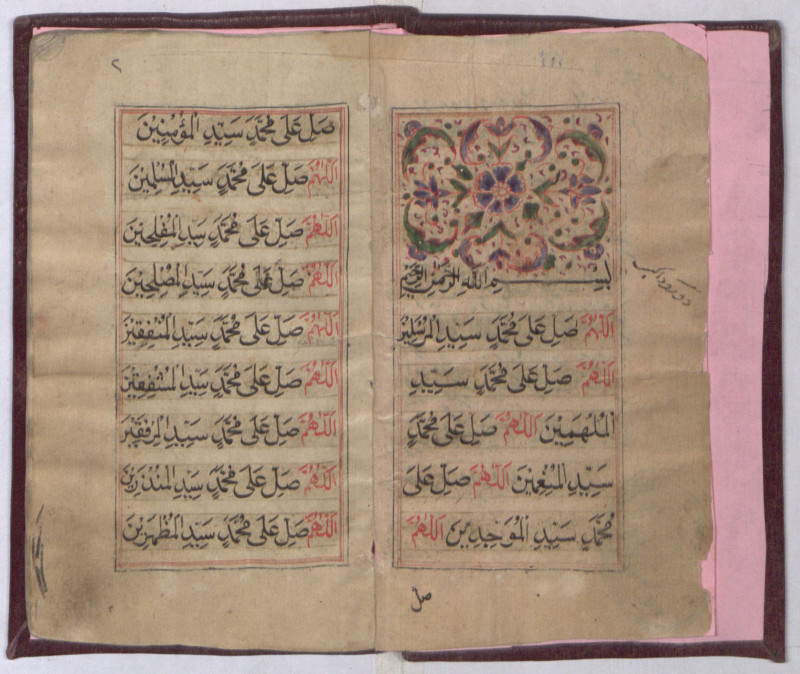 بسم الله الرحمن الرحيم
اللهم صل على محمد سيد المرسلين
اللهم صل على محمد سيد
الملهمين اللهم صل على محمد
سيد المنعمين اللهم صل على
محمد سيد الموحدين اللهم
صل
٢
صل على محمد سيد المؤمنين
اللهم صل على محمد سيد المسلمين
اللهم صل على محمد سيد المفلحين
اللهم صل على محمد سيد المصلحين
اللهم صل على محمد سيد المنفقين
اللهم صل على محمد سيد
اللهم صل على محمد سيد
اللهم صل على محمد سيد المنذرين
اللهم صل على محمد سيد المظهرين